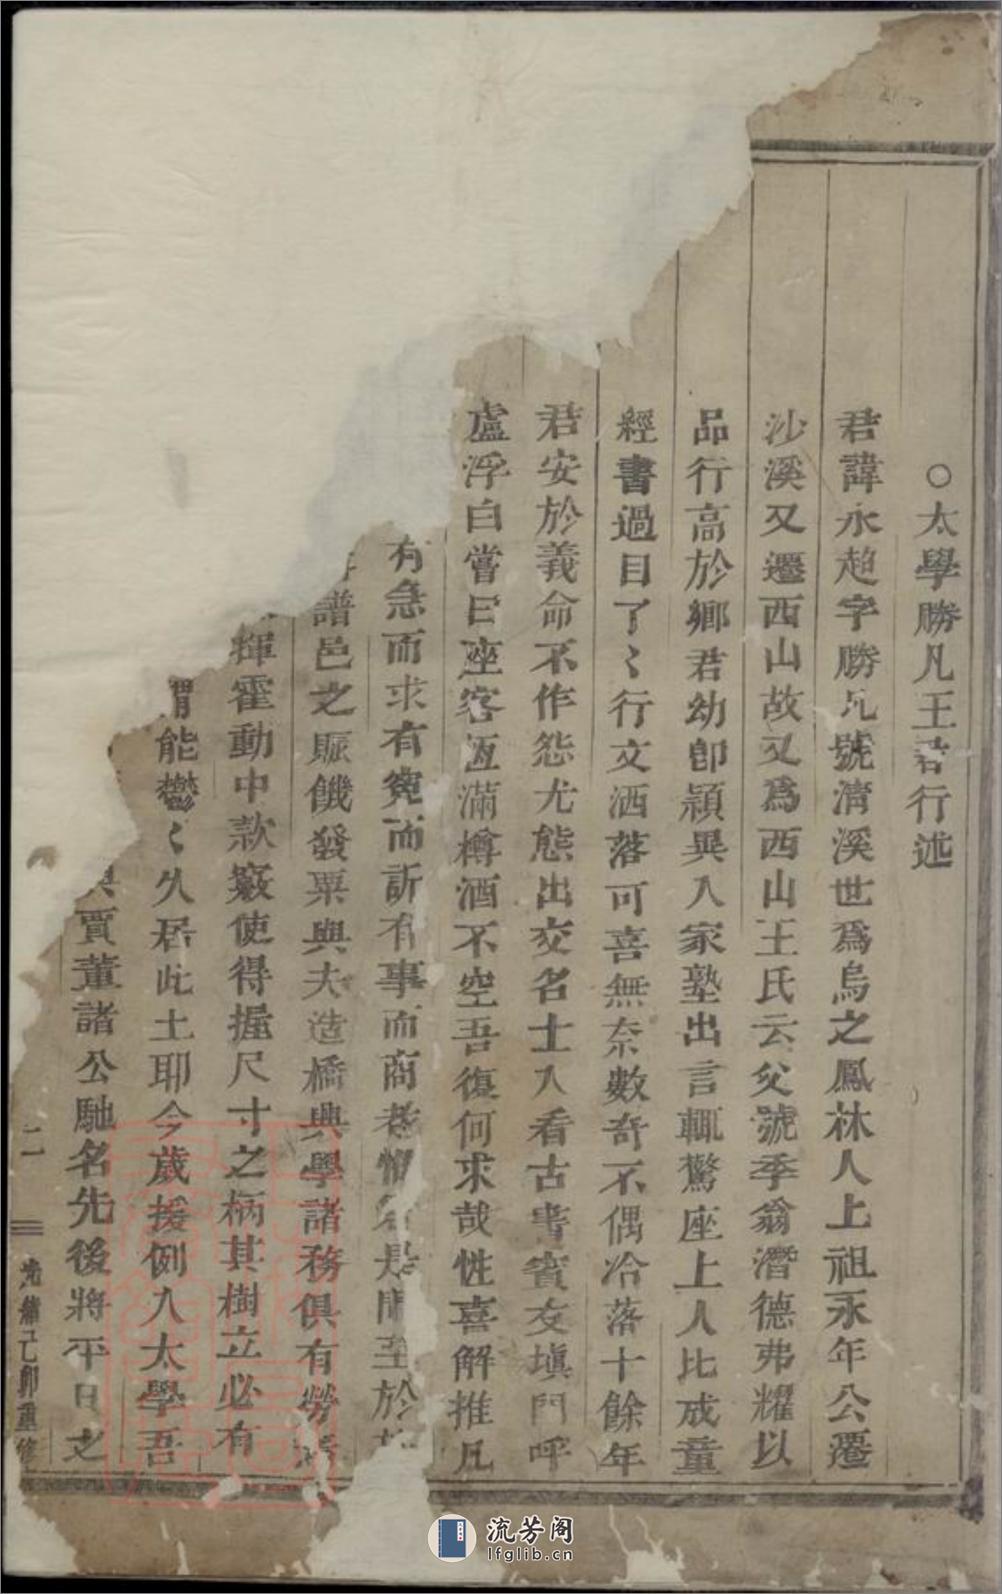 ○太學勝凡王君行述
君諱永超字勝凡號清溪世爲烏之鳳林人上祖永年公遷
沙溪又遷西山故又爲西山王氏云父號季翁潛德弗耀以
品行高於鄉君幼卽穎異入家塾出言輒驚座上人比成童
經書過目了〻行文洒落可喜無奈數奇不偶冷落十餘年
君安於義命不作怨尤態出交名士入看古書賓友塡門呼
盧浮白嘗曰座客恆滿樽酒不空吾復何求哉性喜解推凡
有急而求有冤而訴有事而商者 至於
譜邑之賑饑發粟與夫造橋興學諸務俱有勞
揮霍動中款竅使得握尺寸之柄其樹立必有
謂能鬱〻久居此土耶今歲援例入太學吾
與賈董諸公馳名先後將平日之
二
光緒己卯重修
流芳阁
lfglib.cn